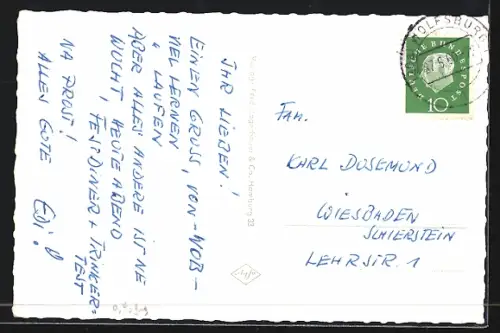 IHR LIEBEN!
EINEN GRUSS, VON-WOB-
NEL LERNEN
+ LAUFEN
ABER ALLES ANDERE IST NE
WUCHT, HEUTE ABEND
FESTDINER + TRINKER-
TEST
NA PROST!
ALLES GUTE EDI.
WOLFSBURG
DEUTSCHE BUNDESPOST
10
FAM.
KARL DUSEMUND
WIESBADEN
SCHIERSTEIN
LEHRSTR. 1